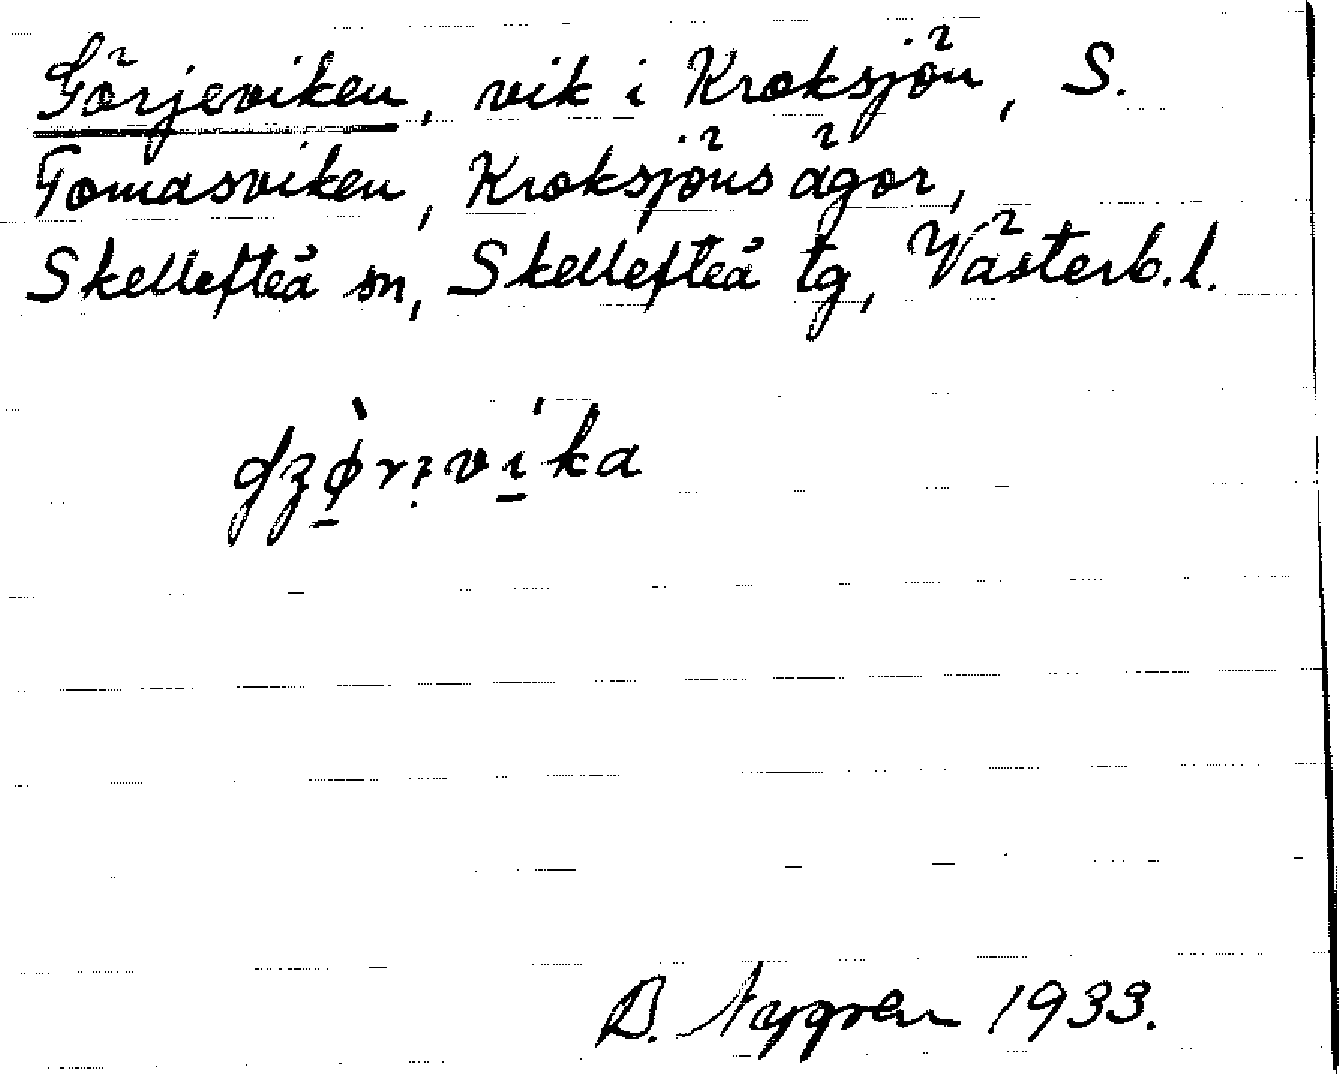 Görjeviken, vik i Kroksjön, S.
Tomasviken, Kroksjöns ägor,
Skellefteå sn, Skellefteå tg, Västerb.l.
B. Nygren 1933.